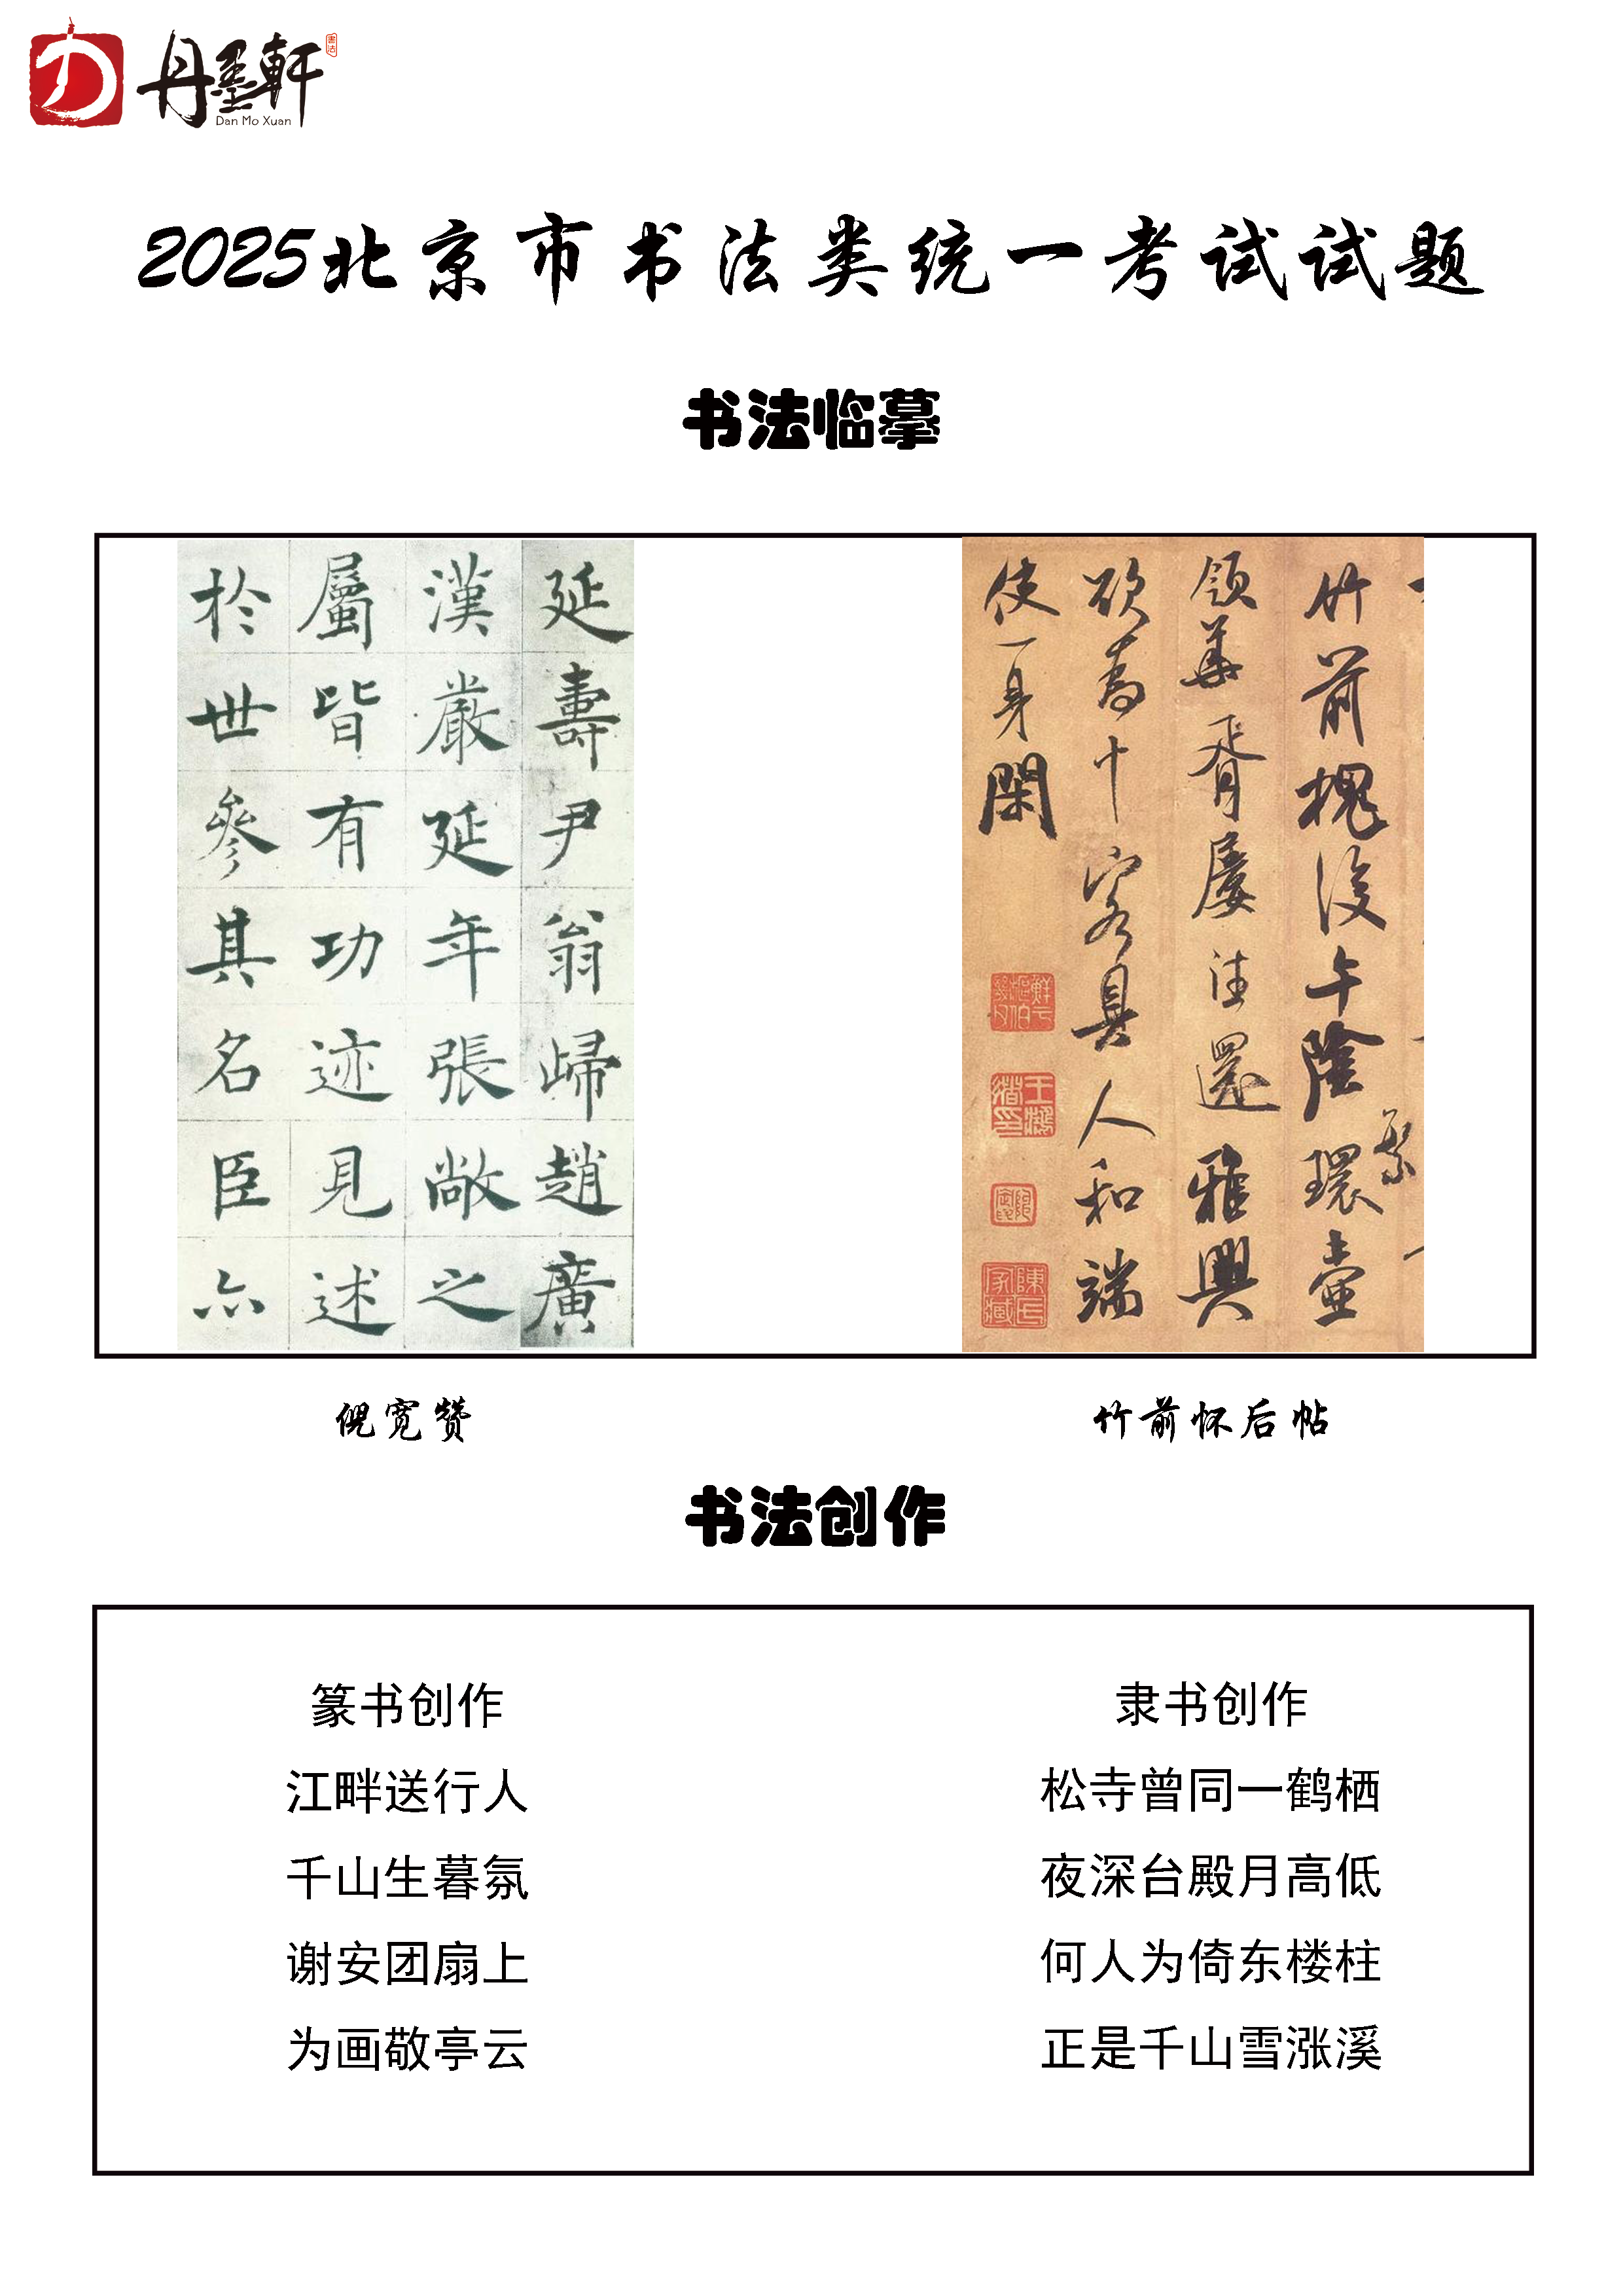 丹墨軒
书法
Dan Mo Xuan
2025北京市书法类统一考试试题
书法临摹
延壽尹翁歸趙廣
漢嚴延年張敞之
屬皆有功迹見述
於世參其名臣亦
竹前槐後午陰
環壺
領華胥屡往還雅興
欲為十客具人和端
使一身閑
倪宽赞
竹前怀后帖
书法创作
篆书创作
江畔送行人
千山生暮氛
谢安团扇上
为画敬亭云
隶书创作
松寺曾同一鹤栖
夜深台殿月高低
何人为倚东楼柱
正是千山雪涨溪